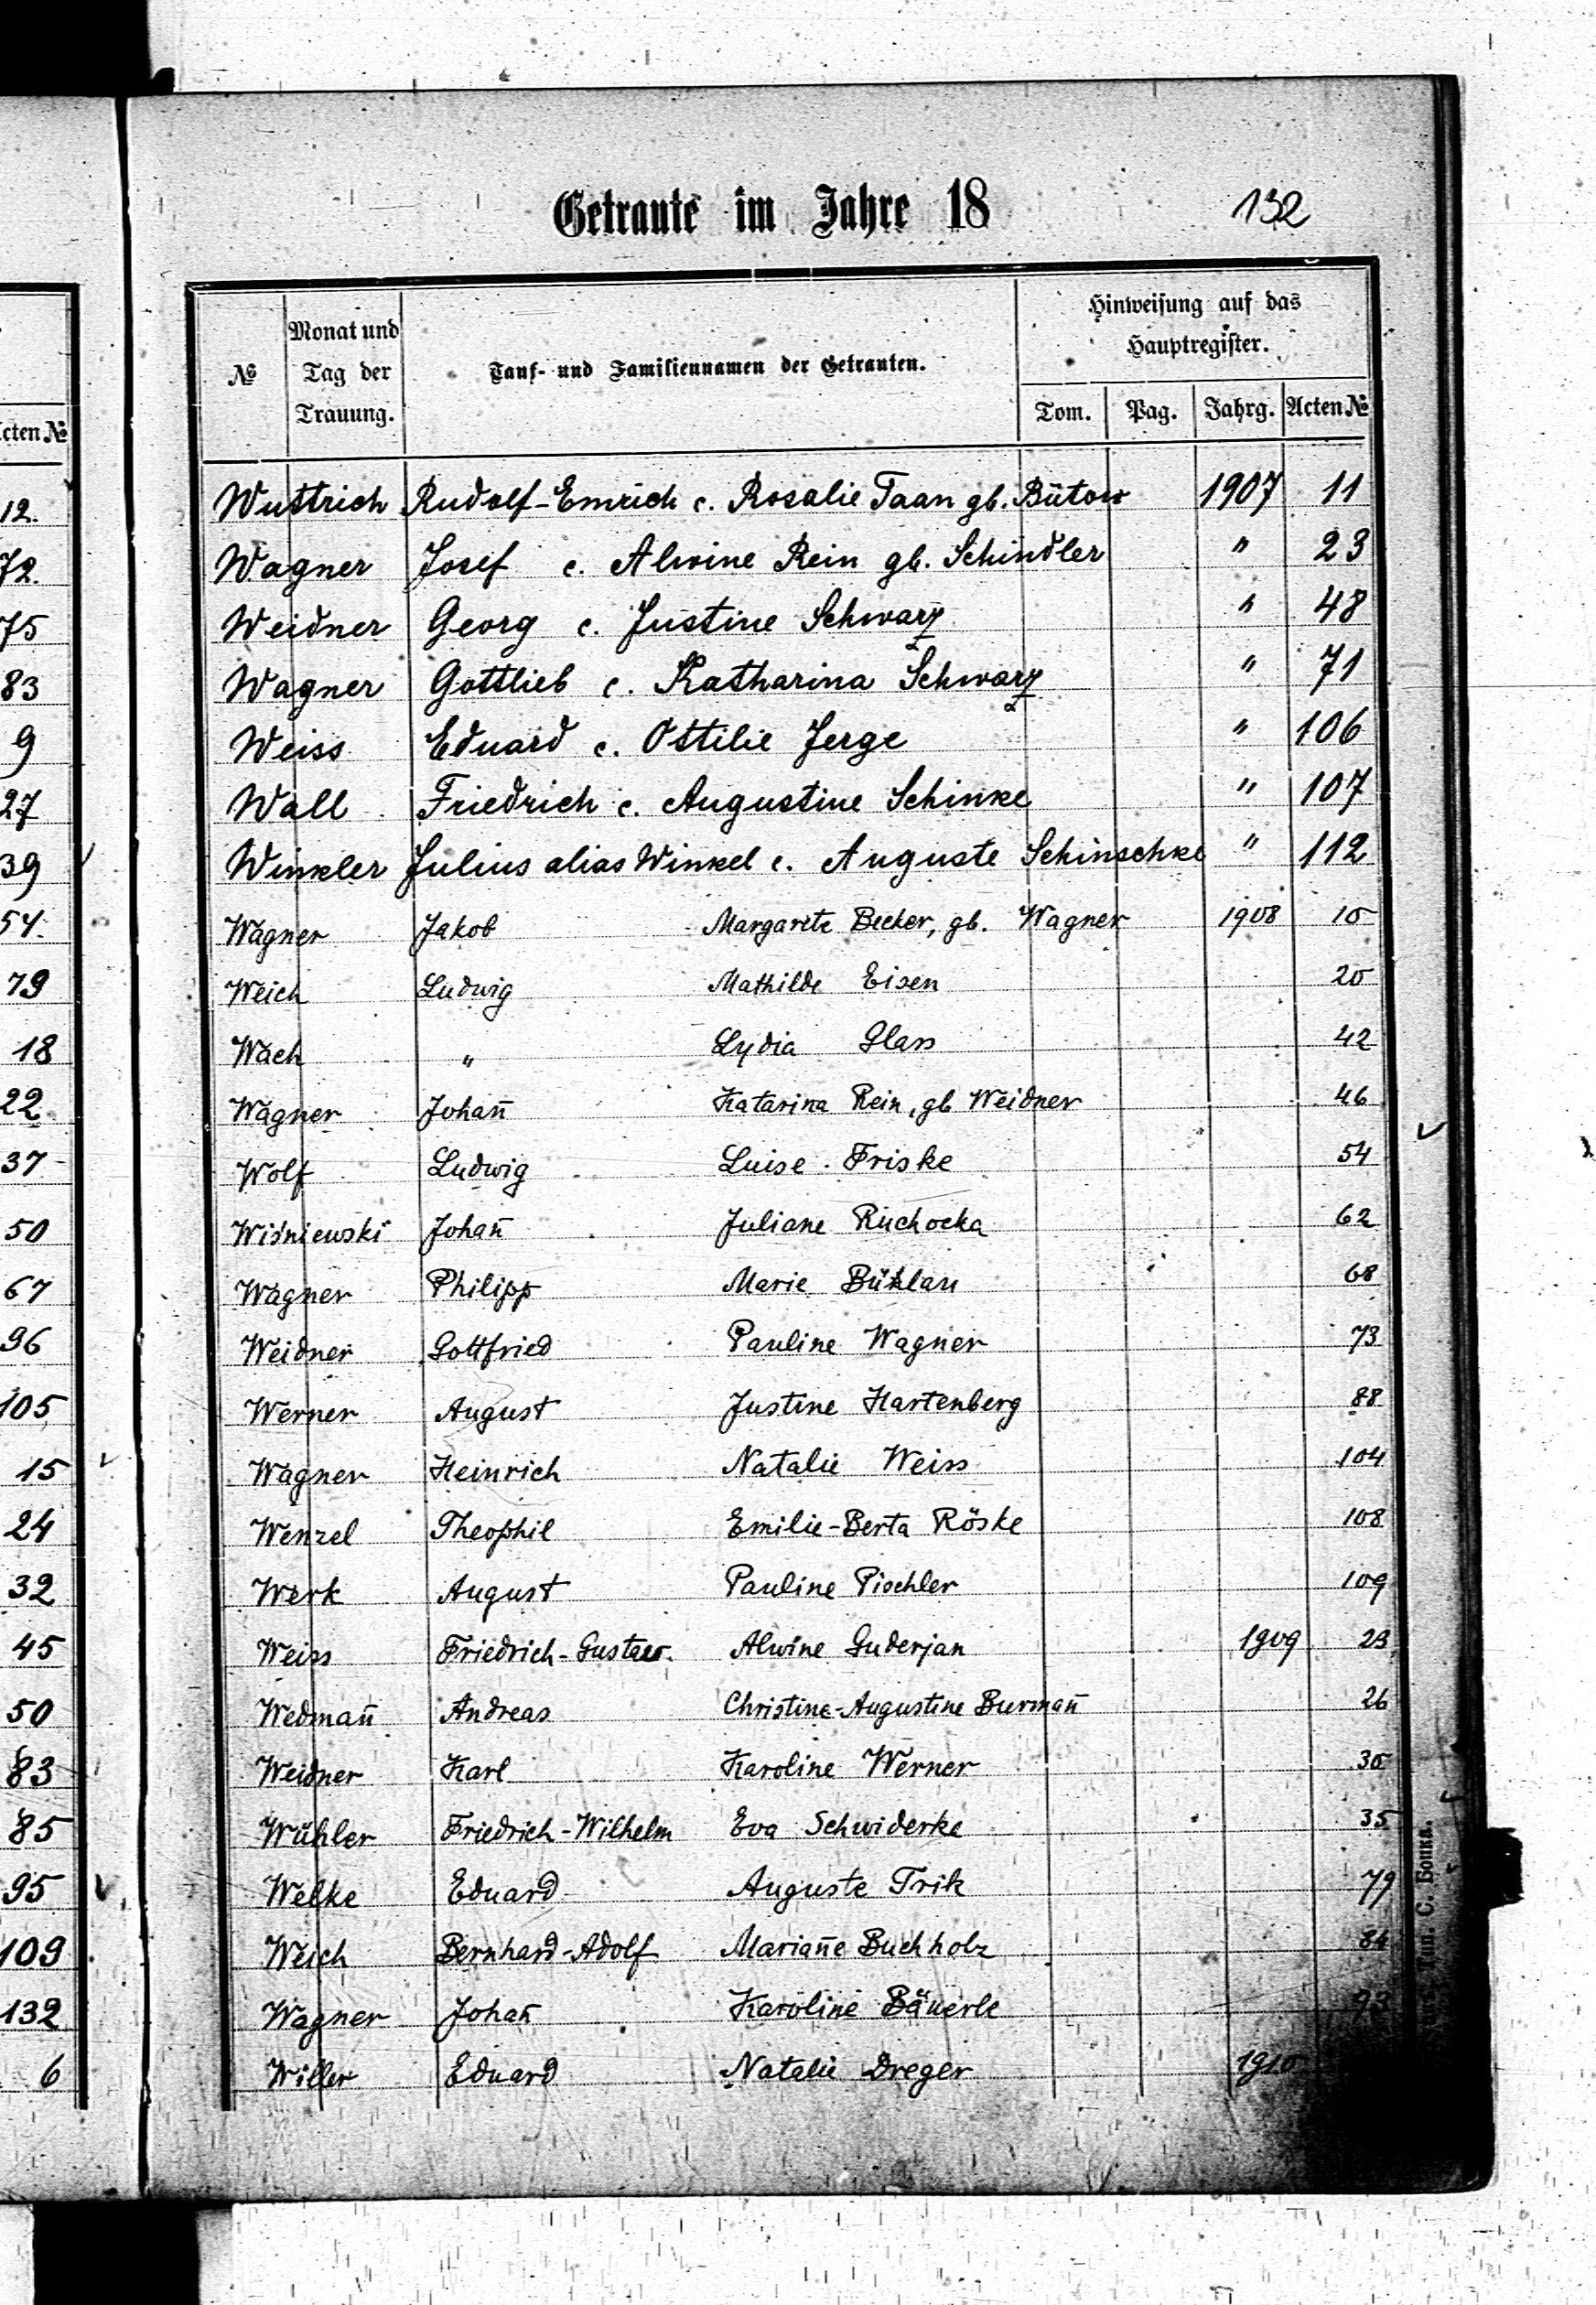 Getraute im Jahre 18 132
Hinweisung auf das
Hauptregister.
№ Monat und Tag der Trauung. Tauf- und Familiennamen der Getrauten. Tom. Pag. Jahrg. Acten №
Wuttrich Rudolf-Emrich c. Rosalie Taan gb. Bütow 1907 11
Wagner Josef c. Alwine Rein gb. Schindler " 23
Weidner Georg c. Justine Schwarz " 48
Wagner Gottlieb c. Katharina Schwarz " 71
Weiss Eduard c. Ottilie Jerge " 106
Wall Friedrich c. Augustine Schinke " 107
Winkler Julius alias Winkel c. Auguste Schinschke " 112
Wagner Jakob Margarete Becker, gb. Wagner 1908 10
Weich Ludwig Mathilde Eisen 20
Wach " Lydia Glass 42
Wagner Johan̄ Katarina Rein, gb Weidner 46
Wolf Ludwig Luise Friske 54
Wiśniewski Johan̄ Juliane Ruchocka 62
Wagner Philipp Marie Bühlau 68
Weidner Gottfried Pauline Wagner 73
Werner August Justine Hartenberg 88
Wagner Heinrich Natalie Weiss 104
Wenzel Theophil Emilie-Berta Röske 108
Werk August Pauline Pischler 109
Weiss Friedrich-Gustav. Alwine Guderjan 1909 23
Wedman̄ Andreas Christine-Augustine Burman̄ 26
Weidner Karl Karoline Werner 30
Wühler Friedrich-Wilhelm Eva Schwiderke 35
Welke Eduard Auguste Trik 79
Weich Bernhard-Adolf Marian̄e Buchholz 84
Wagner Johan̄ Karoline Bäuerle 93
Willer Eduard Natalie Dreger 1910
Acten №
12.
72.
75
83
9
27
39
54.
79
18
22
37
50
67
96
105
15
24
32
45
50
83
85
95
109
132
6
Тип. С. Бопка.